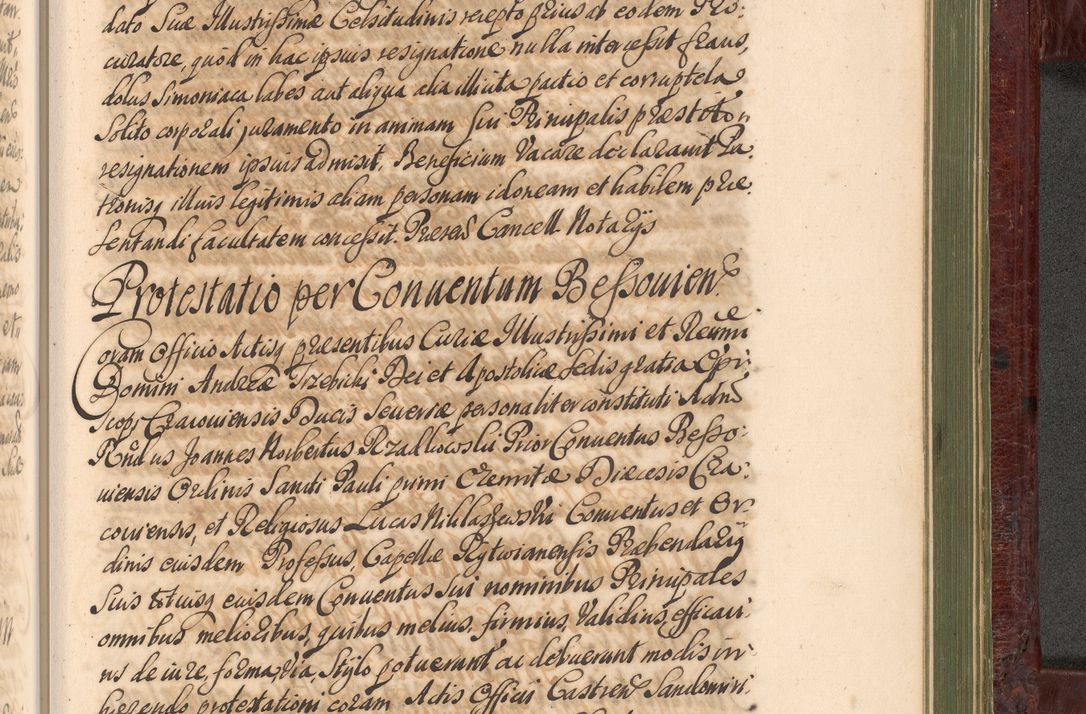 dato Suæ Illustrissimæ Celsitudinis recepto prius ab eodem Pro:
curatore, quod in hac ipsius resignatione nulla intercessit fraus,
dolus Simoniaca labes aut aliqua alia illicita pactio et corruptela
Solito corporali juramento in animam sui Principalis præstito,
resignationem ipsius admisit, Beneficium Vacare declaravit Pa:
tronisq illius legitimis aliam personam idoneam et habilem præ:
sentandi facultatem concessit. Presen Cancell Notarijs
Protestatio per Conuentum Bessouien
Coram Officio Actisq præsentibus Curiæ Illustrissimi et Reumi
Domini Andreæ Trzebicki Dei et Apostolicæ Sedis gratia Epi:
scopi Cracouiensis Ducis Seueriæ personaliter constituti Adm
Rndus Joannes Norbertus Rzadkowski Prior Conuentus Besso:
uiensis Ordinis Sancti Pauli primi Eremitæ Diæcesis Cra:
couiensis, et Religiosus Lucas Niklaszewski Conuentus et Or:
dinis eiusdem Professus, Capellæ Rytwianensis Præbendarij
Suis totiusq eiusdem Conuentus Sui nominibus Principales
omnibus melioribus, quibus melius, firmius, Validius, efficaci
us de iure, forma, via, Stylo potuerunt ac debuerunt modis in
hærendo protestationi coram Actis Officii Castren Sandomiri